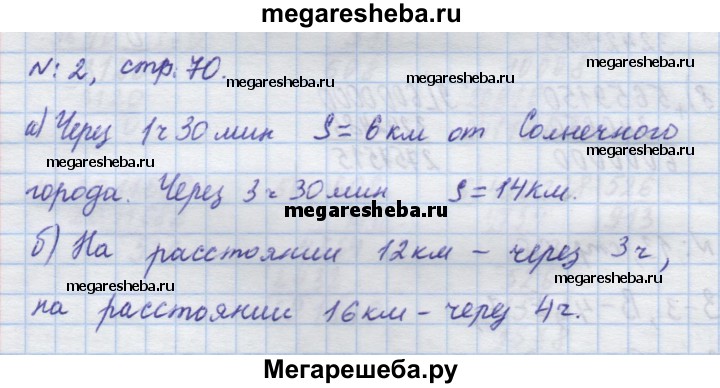 megaresheba.ru
№ 2, стр. 70.
megaresheba.ru
megaresheba.ru
а) Через 1ч 30 мин S = 6 км от Солнечного
megaresheba.ru
megaresheba.ru
города. Через 3ч 30 мин S = 14 км.
megaresheba.ru
б) На расстоянии 12 км – через 3ч,
megaresheba.ru
megaresheba.ru
на расстоянии 16 км – через 4ч.
Мегарешеба.ру